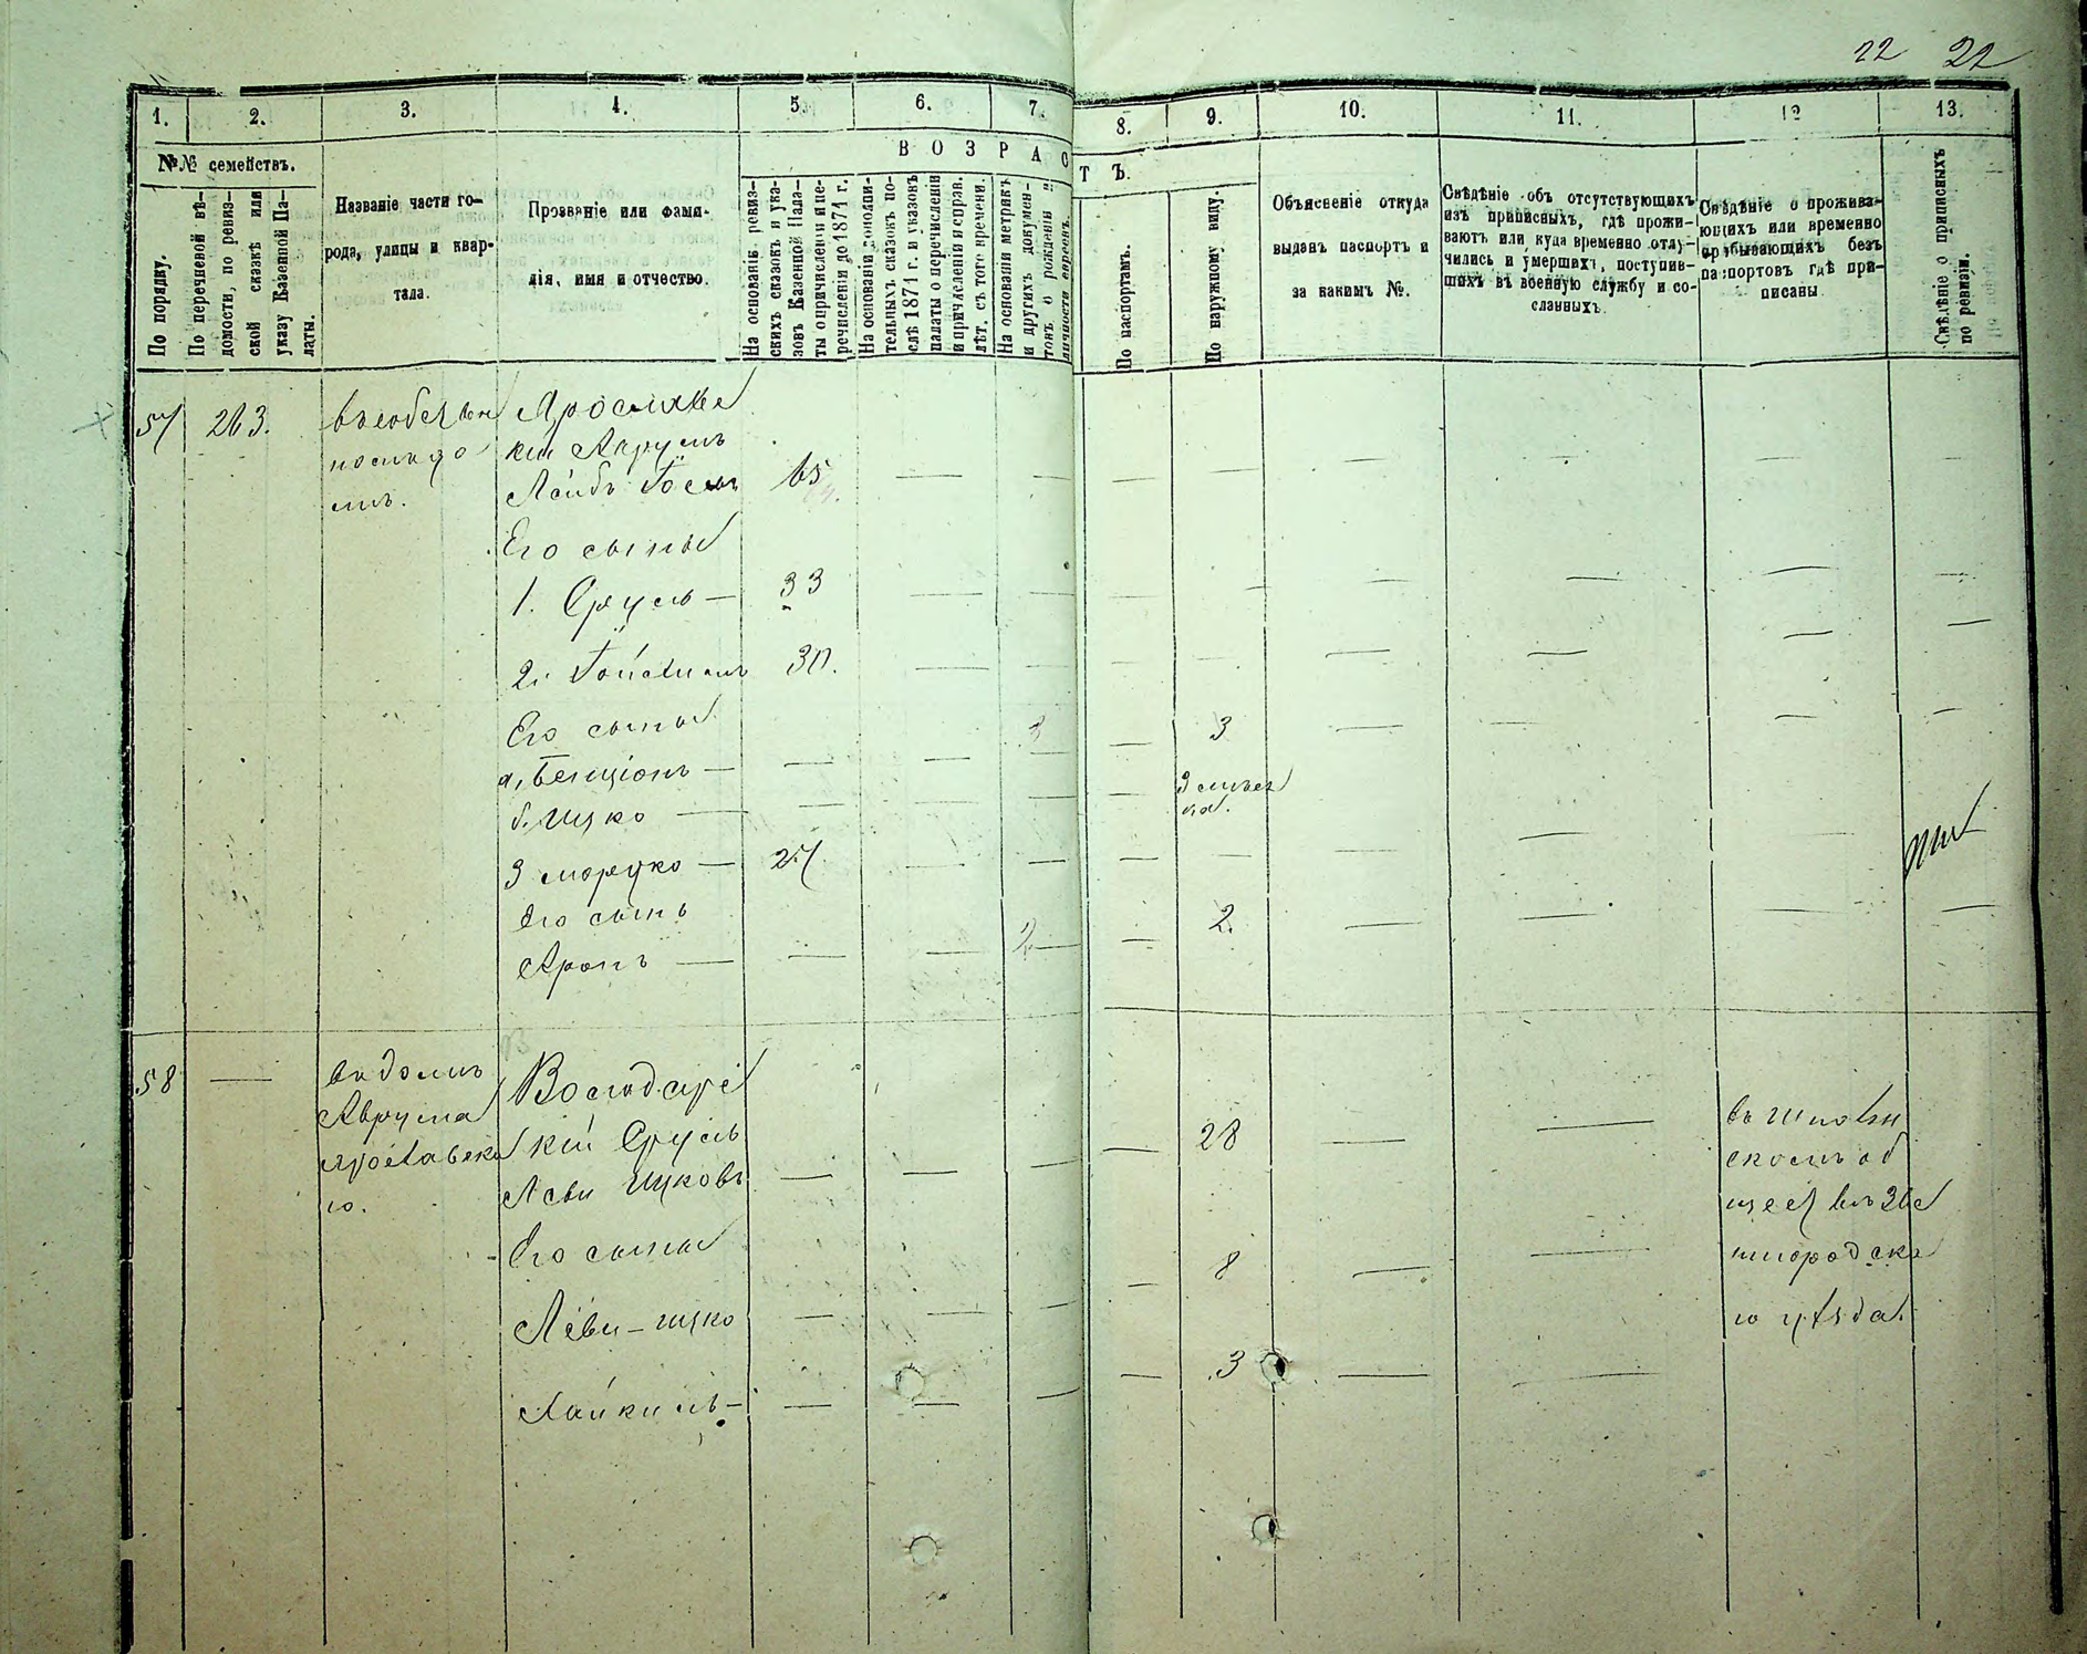 22 22
1. 2. 3. 4. 5. 6. 7. 8. 9. 10. 11. 12 13.
№№ семействъ.
ВОЗРАСТЪ.
По порядку.
По перечневой вѣ-
домости, по ревиз-
ской сказкѣ или
указу Казенной Па-
латы.
Названіе части го-
рода, улицы и квар-
тала.
Прозваніе или фами-
лія, имя и отчество.
На основаніи ревиз-
скихъ сказокъ и ука-
зовъ Казенной Пала-
ты о причисленіи и пе-
речисленіи до 1874 г.
На основаніи дополни-
тельныхъ сказокъ по-
слѣ 1874 г. и указовъ
палаты о перечисленіи
и причисленіи и справ.
лѣт. съ того времени.
На основаніи метрикъ
и другихъ докумен-
товъ о рожденіи и
личности евреевъ.
По паспортамъ.
По наружному виду.
Объясненіе откуда
выданъ паспортъ и
за какимъ №.
Свѣдѣніе объ отсутствующихъ
изъ приписныхъ, гдѣ прожи-
ваютъ или куда временно отлу-
чились и умершихъ, поступив-
шихъ въ военную службу и со-
сланныхъ.
Свѣдѣніе о прожива-
ющихъ или временно
прибывающихъ безъ
паспортовъ гдѣ при-
писаны
Свѣдѣніе о приписныхъ
по ревизіи.
57 263.
Ярославс
кій Аврумъ
Лейбъ Іосъ 65
Его сыны
1. Сруль — 33
2. 30.
Его сыны 3 3
а, Бенціонъ —
б. Ицко — 3 мѣся
ца.
3 Мортко — 27
Его сынъ 2 2.
Аронъ —
58 — въ домѣ
Аврума
Ярославска
го.
Володарс
кій Сруль 28
Леви Ицковъ
Его сыны 8
Леви-Ицко
Хайкилъ — 3
въ
скомъ об
щес Звѣ
нигородска
го уѣзда.